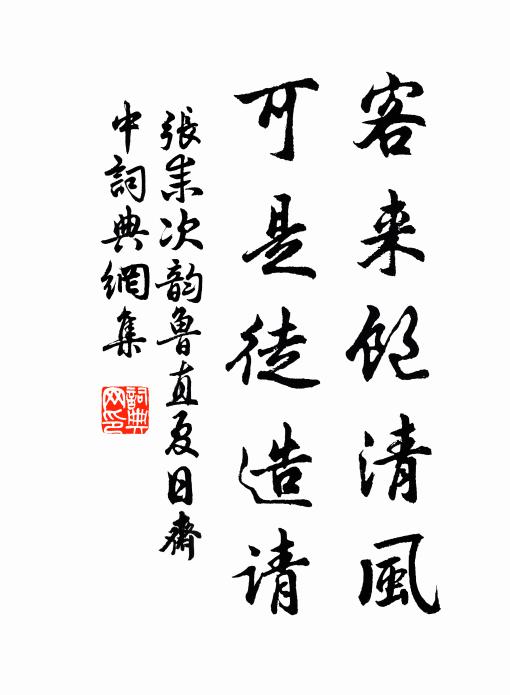 客来飽清風
可是徒造请
張耒次韵魯直夏日齋
中詞典網集
詞典
网印